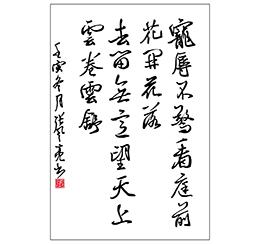 寵辱不驚看庭前
花開花落
去留無意望天上
雲卷雲舒
壬寅冬月張亮書